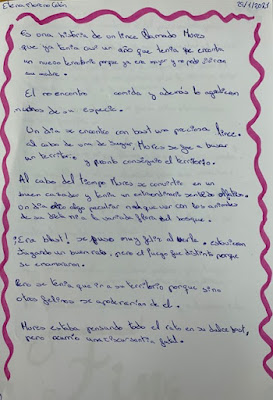 Elena Moreno
25/1/2021
Es una historia de un lince llamado Mores
que ya tenia casi un año que tenia que encontrar
un nuevo territorio porque ya era mayor y no podia vivir con
su madre.
El no encontro comida y además le atacaban
muchos de su especie.
Un dia se encontro con bast una preciosa lince.
al cabo de una de Mores se fue a buscar
un territorio y pronto consiguio el territorio.
Al cabo del tiempo Mores se convirtio en un
buen cazador y tenia un extraordinario sentido
Un dia olio algo peculiar nada que ver con los animales
de su dieta ni a la variada flora del bosque.
¡Era bast! se puso muy feliz al verla. estuvieron
jugando un buen rato, pero el juego fue distinto porque
se enamoraron.
Pero se tenia que ir a su territorio porque sino
otros felinos se apoderarian de el.
Mores estaba pensando todo el rato en su dulce bast,
pero ocurrio una cosa fatal.